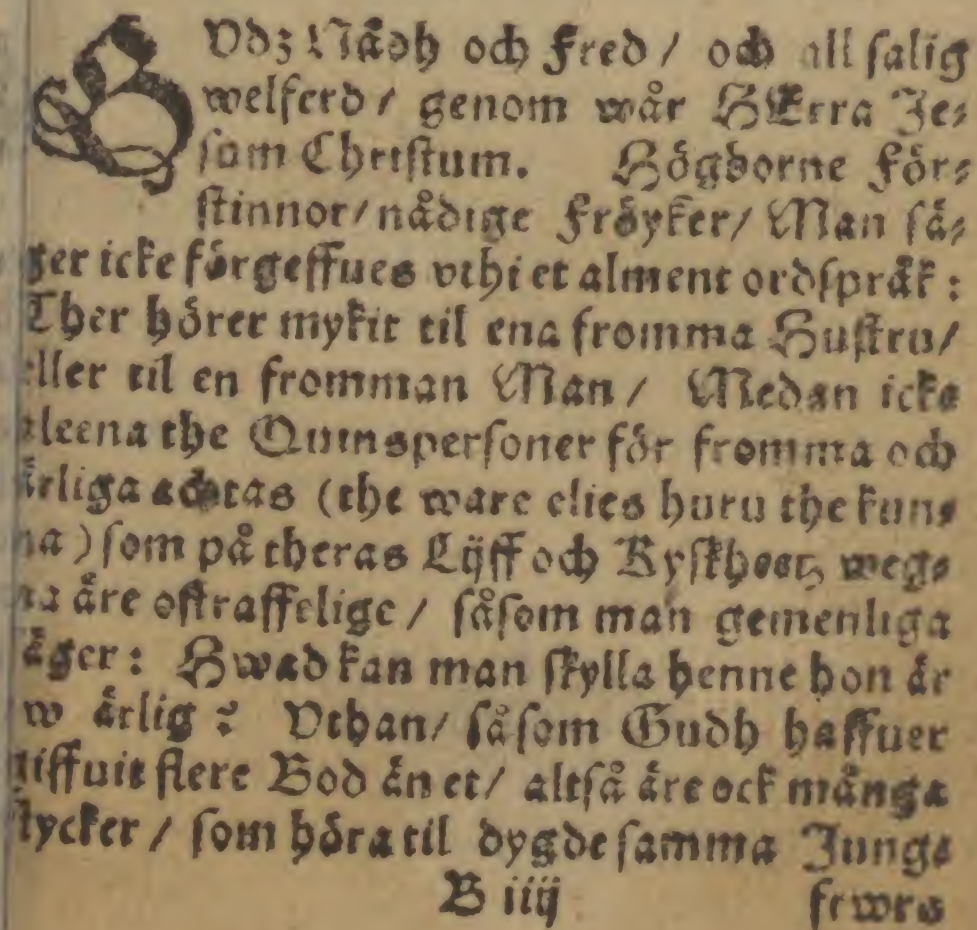 GVdz Nådh och Fred / och all salig
welferd / genom wår HErra Je⸗
sum Christum. Högborne För⸗
stinnor / nådige Fröyker / Man sä⸗
ger icke förgeffues vthi et alment ordspråk :
Ther hörer mykit til ena fromma Hustru /
eller til en fromman Man / Medan icke
aleena the Quinspersoner för fromma och
ärliga achtas (the ware elies huru the kun⸗
na ) som på theras Lijff och Kyskheetz weg⸗
na äre ostraffelige / såsom man gemenliga
säger : Hwad kan man skylla henne hon är
w ärlig ? Vthan / såsom Gudh haffuer
giffuit flere Bod än et / altså äre ock många
stycker / som höra til dygdesamma Jung⸗
B iiij frwrs